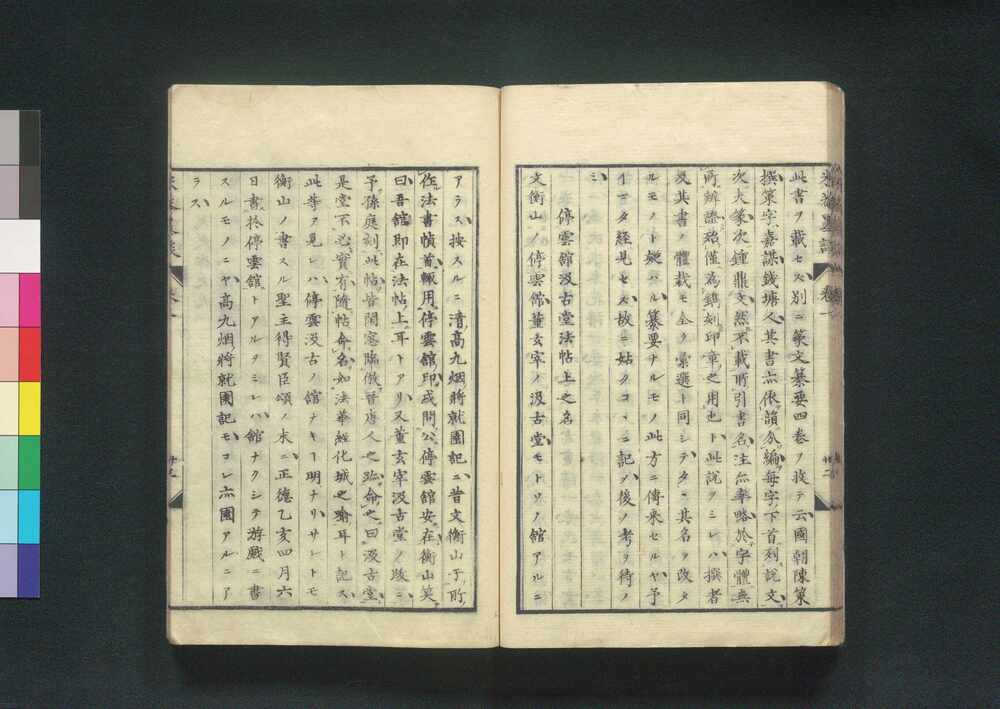 此書ヲ載セス別ニ篆文纂要四卷ヲ投テ云國朝陳策
撰策字嘉謀錢塘人其書亦依韻分編每字下首列說文
次大篆次鍾鼎文然不載所引書名注亦率略於字體無
所辨證殆僅為鐫刻印章之用也ト此說ヲミレハ撰者
及其書ノ體裁モ全ク彙選ト同シテタヽ其名ヲ改タ
ルモノト麹ハル纂要ナルモノ此方ニ傳来セルヤ予
イマタ経見セス故ニ姑クコヽニ記ソ後ノ考ヲ待ノ
ミ
停雲舘汲古堂法帖上之名
文衡山ノ停雲舘董玄宰ノ汲古堂モトヨリ舘アルニ
アラス按スルニ清高九烟將就園記ニ昔文衡山于所
作法書幀首輙用停雲舘印或問公停雲舘安在衡山笑
曰吾舘即在法帖上耳トアリ又董玄宰汲古堂ノ跋ニ
予孫庭刻此帖皆閒窓臨倣晉唐人之跡命之曰汲古堂
是堂不必實有隨帖命名如法華經化城之喩耳ト記ス
此等ヲ見レハ停雲汲古ノ舘ナキヿ明ナリサレトモ
衡山ノ書スル聖主得賢臣頌ノ末ニ正德乙亥四月六
日書於停雲舘トアルヲミレハ舘ナクシテ游戲ニ書
スルモノニヤ高九烟將就園記モコレ亦園アルニア
ラス